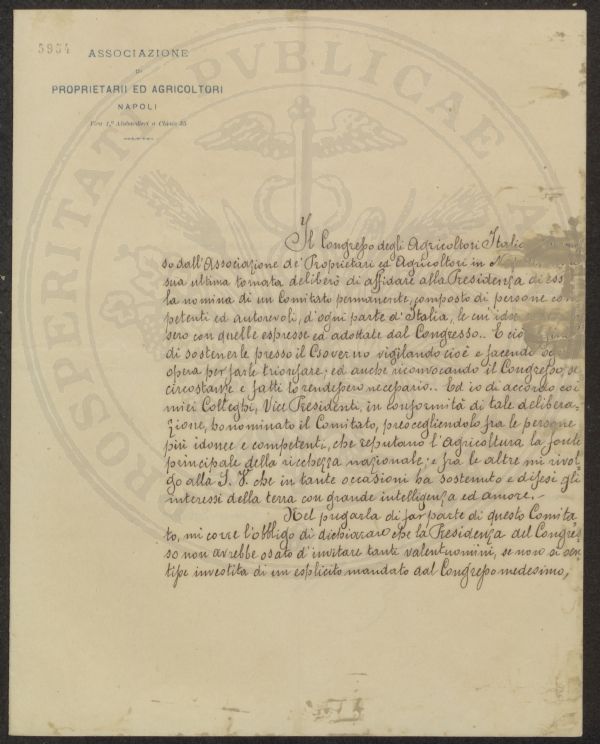 5954
ASSOCIAZIONE
DI
PROPRIETARII ED AGRICOLTORI
NAPOLI
PROSPERITAT PVBLICAE
Il Congresso degli Agricoltori Italia
so dall'Associazione de' Proprietari ed Agricoltori in
sua ultima tornata deliberò di affidare alla Presidenza di
la nomina di un Comitato permanente, composto di persone com
petenti ed autorevoli, d'ogni parte d'Italia, le cui
sero con quelle espresse ed adottate dal Congresso.. E ciò
di sostenerle presso il Governo vigilando cioè e facendo
opera per farle trionfare; ed anche riconvocando il Congresso, se
circostanze e fatti lo rendessero necessario.. Ed io di accordo coi
miei Colleghi, Vice Presidenti, in conformità di tale delibera-
zione, ho nominato il Comitato, prescegliendolo fra le persone
più idonee e competenti, che reputano l'Agricoltura la fonte
principale della ricchezza nazionale; e fra le altre mi rivol-
go alla S. V. che in tante occasioni ha sostenuto e difesi gli
interessi della terra con grande intelligenza ed amore.-
Nel pregarla di far parte di questo Comita-
to, mi corre l'obbligo di dichiarare che la Presidenza del Congres-
so non avrebbe osato d'invitare tanti valentuomini, se non si sen-
tisse investita di un esplicito mandato dal Congresso medesimo,